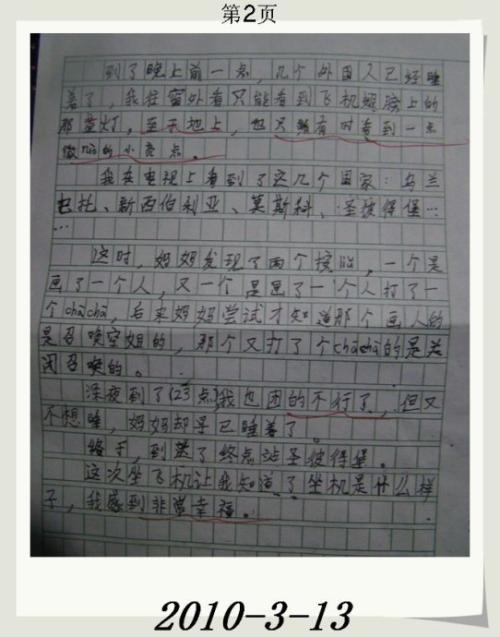 第2页
到了晚上前一点,几个外国人已经睡
着了,我往窗外看只能看到飞机翅膀上的
那盏灯,至于地上,也只能有时看到一点
微小的小亮点。
我在电视上看到了这几个国家:乌兰
巴托、新西伯利亚、莫斯科、圣彼得堡……
……
这时,妈妈发现了两个按钮,一个是
画了一个人,又一个是画了一个人打了一
个chācha,后来妈妈尝试才知道那个画人的
是召唤空姐的,那个又打了个chācha的是关
闭召唤的。
深夜到了(23点)我也困的不行了,但又
不想睡,妈妈却早已睡着了。
终于,到达了终点站圣彼得堡。
这次坐飞机让我知道了坐机是什么样
子,我感到非常幸福。
2010-3-13